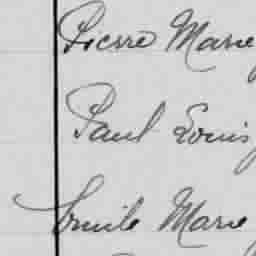 Pierre Marie
Paul Louis
Emile Marie